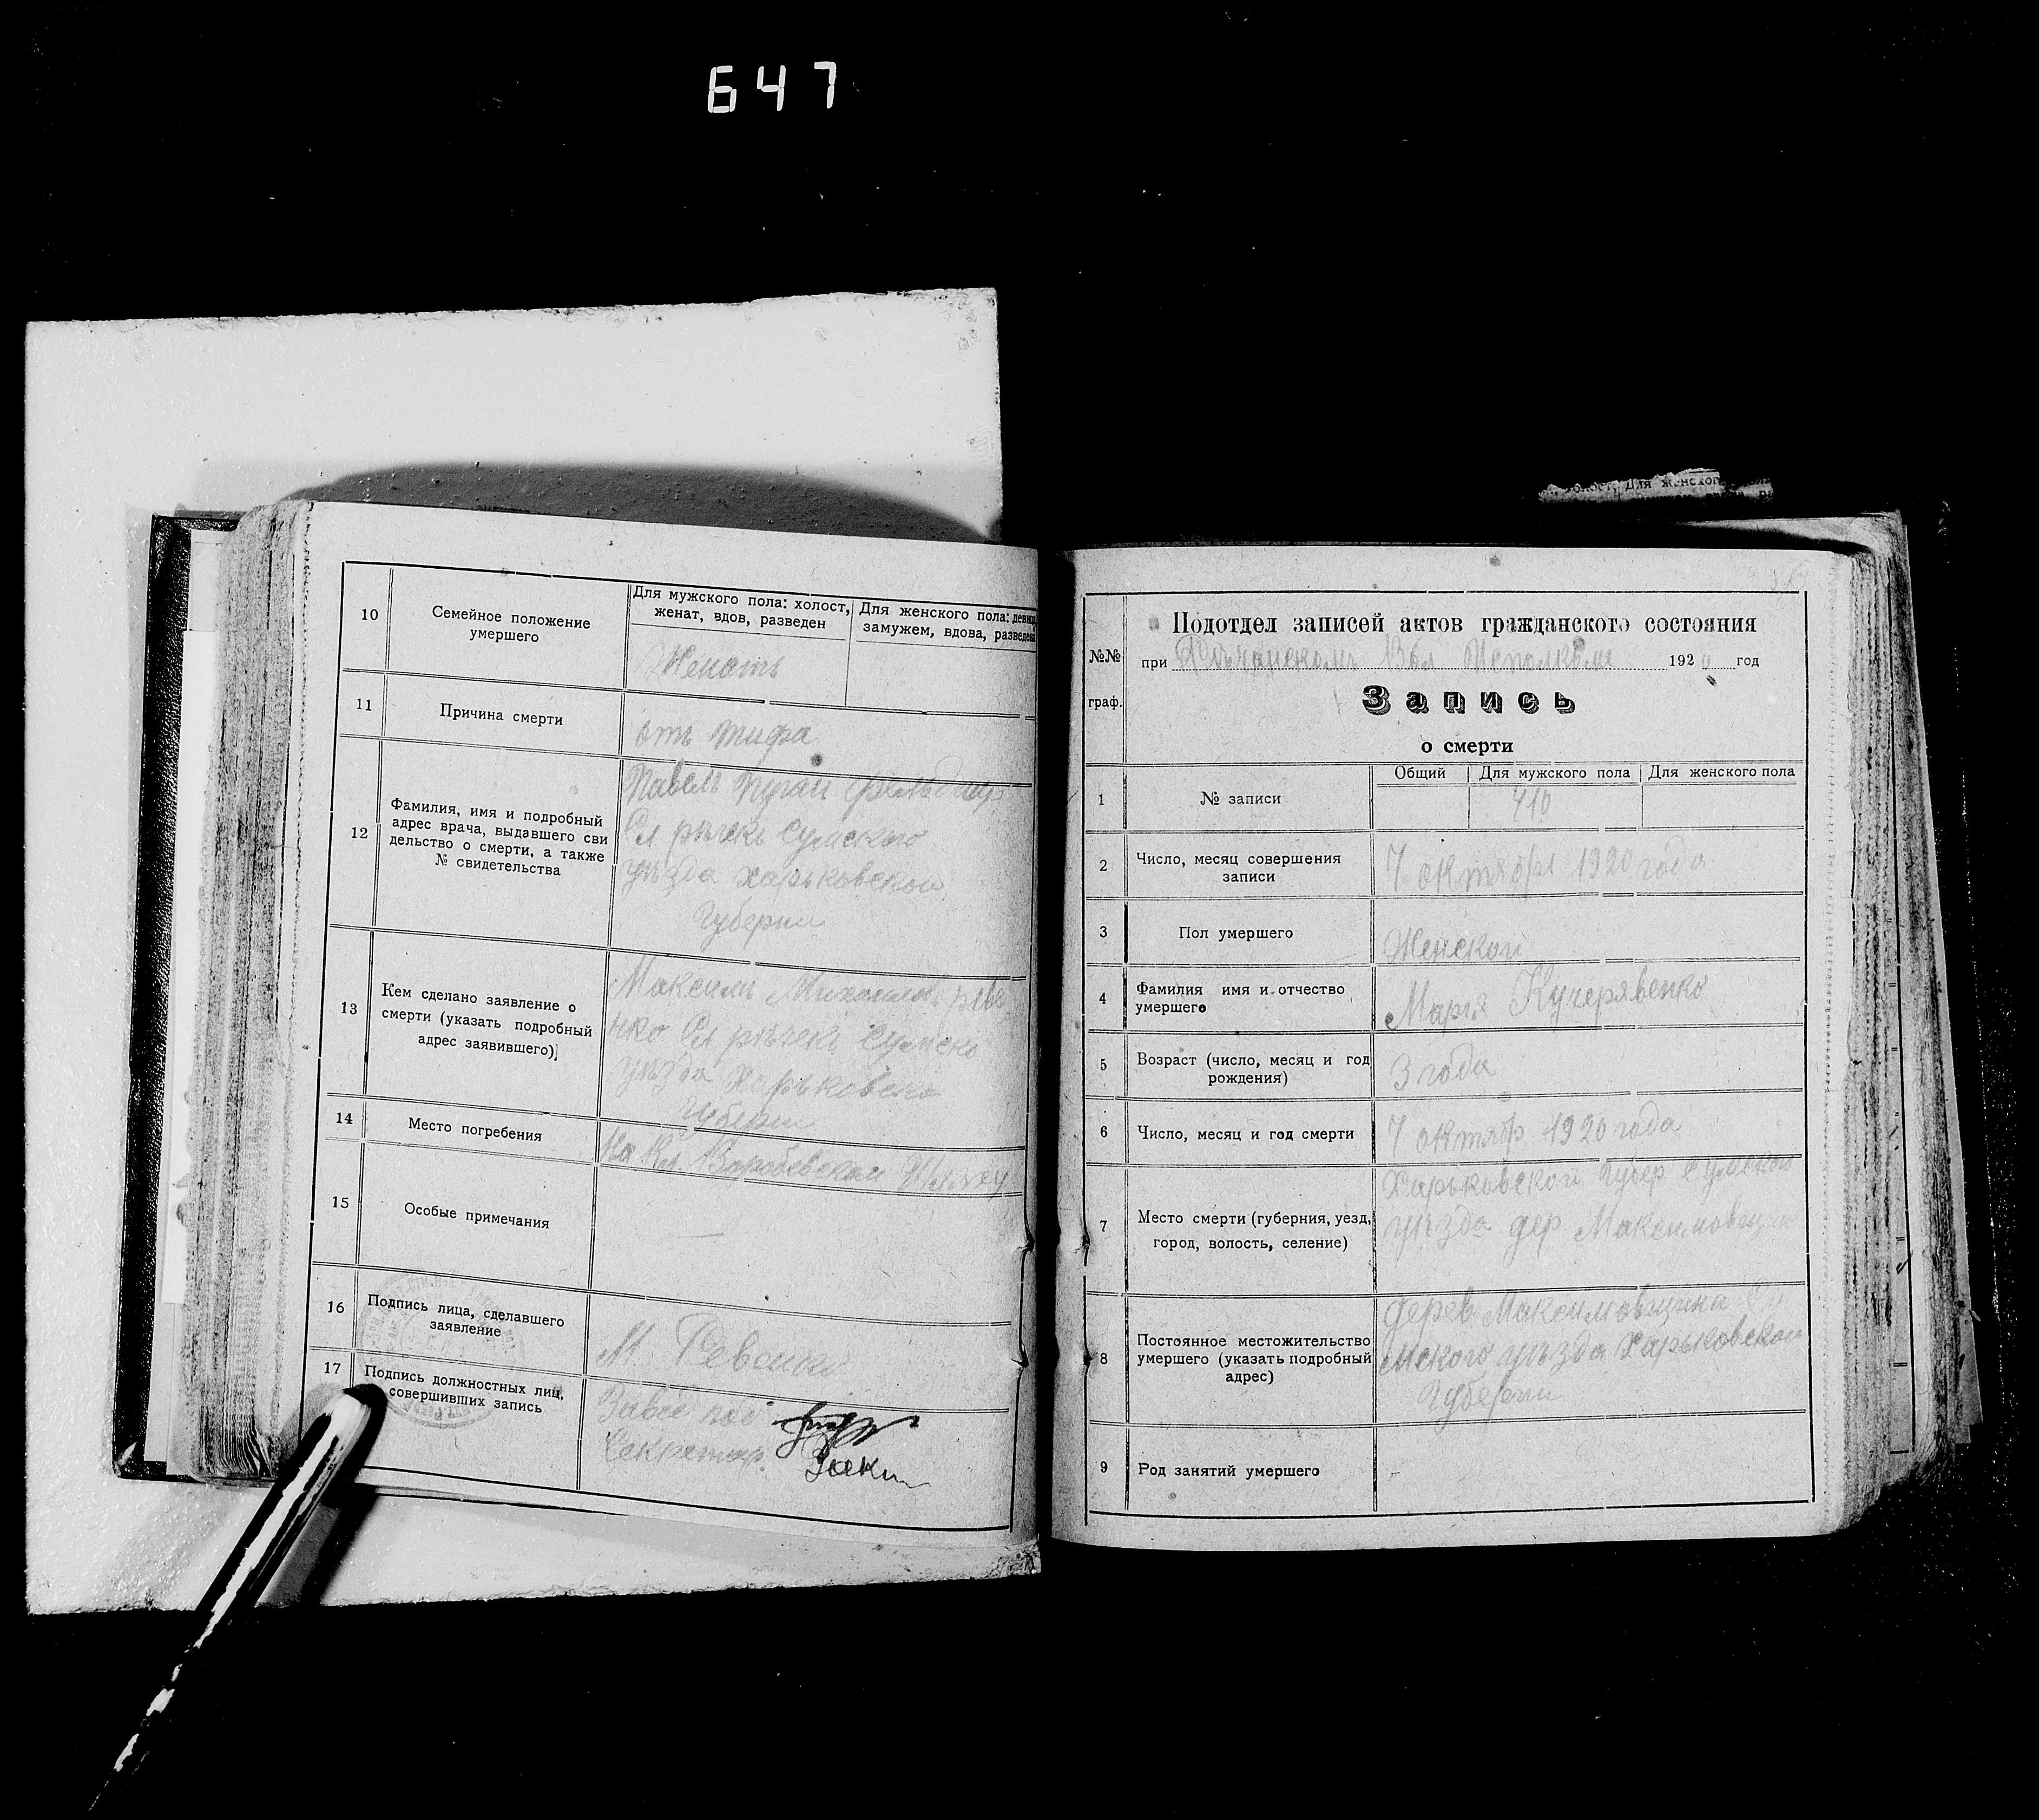 647
10
Семейное положение
умершего
Для мужского пола: холост,
женат, вдов, разведен
Для женского пола: девица,
замужем, вдова, разведена
Женатъ
11
Причина смерти
отъ тифа
12
Фамилия, имя и подробный
адрес врача, выдавшего сви
дельство о смерти, а также
№ свидетельства
Павелъ
Сл рѣчекъ Сумского
уѣзда Харьковской
Губерни
13
Кем сделано заявление о
смерти (указать подробный
адрес заявившего)
Максимъ
нко Сл рѣчекъ Сумско
уѣзда Харьковско
губерн
14
Место погребения
На Кл.
15
Особые примечания
16
Подпись лица, сделавшего
заявление
М
17
Подпись должностных лиц,
совершивших запись
Секретар
№№
граф.
Подотдел записей актов гражданского состояния
при Рѣчанскомъ Вол 1920 год
Запись
о смерти
1
№ записи
Общий
Для мужского пола
Для женского пола
410
2
Число, месяц совершения
записи
7 октября 1920 года
3
Пол умершего
Женской
4
Фамилия имя и отчество
умершего
Мария Кучерявенко
5
Возраст (число, месяц и год
рождения)
3 года
6
Число, месяц и год смерти
7 октябр 1920 года
7
Место смерти (губерния, уезд,
город, волость, селение)
Харьковской Губер Сумской
уѣзда дер Максимовщин
8
Постоянное местожительство
умершего (указать подробный
адрес)
дерев Максимовщина Су
мского уѣзда Харьковской
Губерни
9
Род занятий умершего